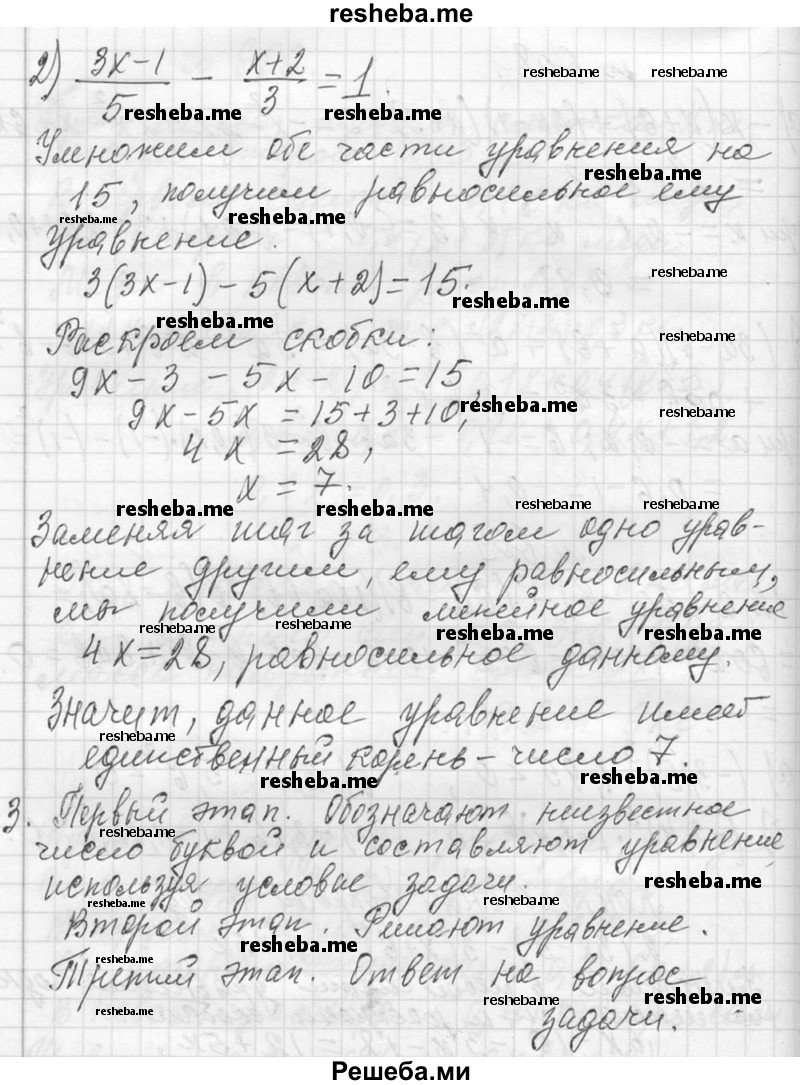 resheba.me
2) (3x-1)/5 - (x+2)/3 = 1.
resheba.me resheba.me
resheba.me
Умножим обе части уравнения на
resheba.me
15, получим равносильное ему
resheba.me resheba.me
уравнение.
3(3x-1) - 5(x+2) = 15.
resheba.me
resheba.me
resheba.me
Раскроем скобки:
resheba.me
9x - 3 - 5x - 10 = 15,
9x - 5x = 15 + 3 + 10,
resheba.me resheba.me
4x = 28,
x = 7.
resheba.me resheba.me resheba.me resheba.me
Заменяя шаг за шагом одно урав-
нение другим, ему равносильным,
мы получили линейное уравнение
resheba.me resheba.me resheba.me resheba.me
4x = 28, равносильное данному.
Значит, данное уравнение имеет
resheba.me
единственный корень - число 7.
resheba.me resheba.me
3. Первый этап. Обозначают неизвестное
resheba.me
число буквой и составляют уравнение,
используя условие задачи.
resheba.me resheba.me resheba.me
Второй этап. Решают уравнение.
resheba.me
Третий этап. Ответ на вопрос
resheba.me resheba.me resheba.me
задачи.
Решеба.ми